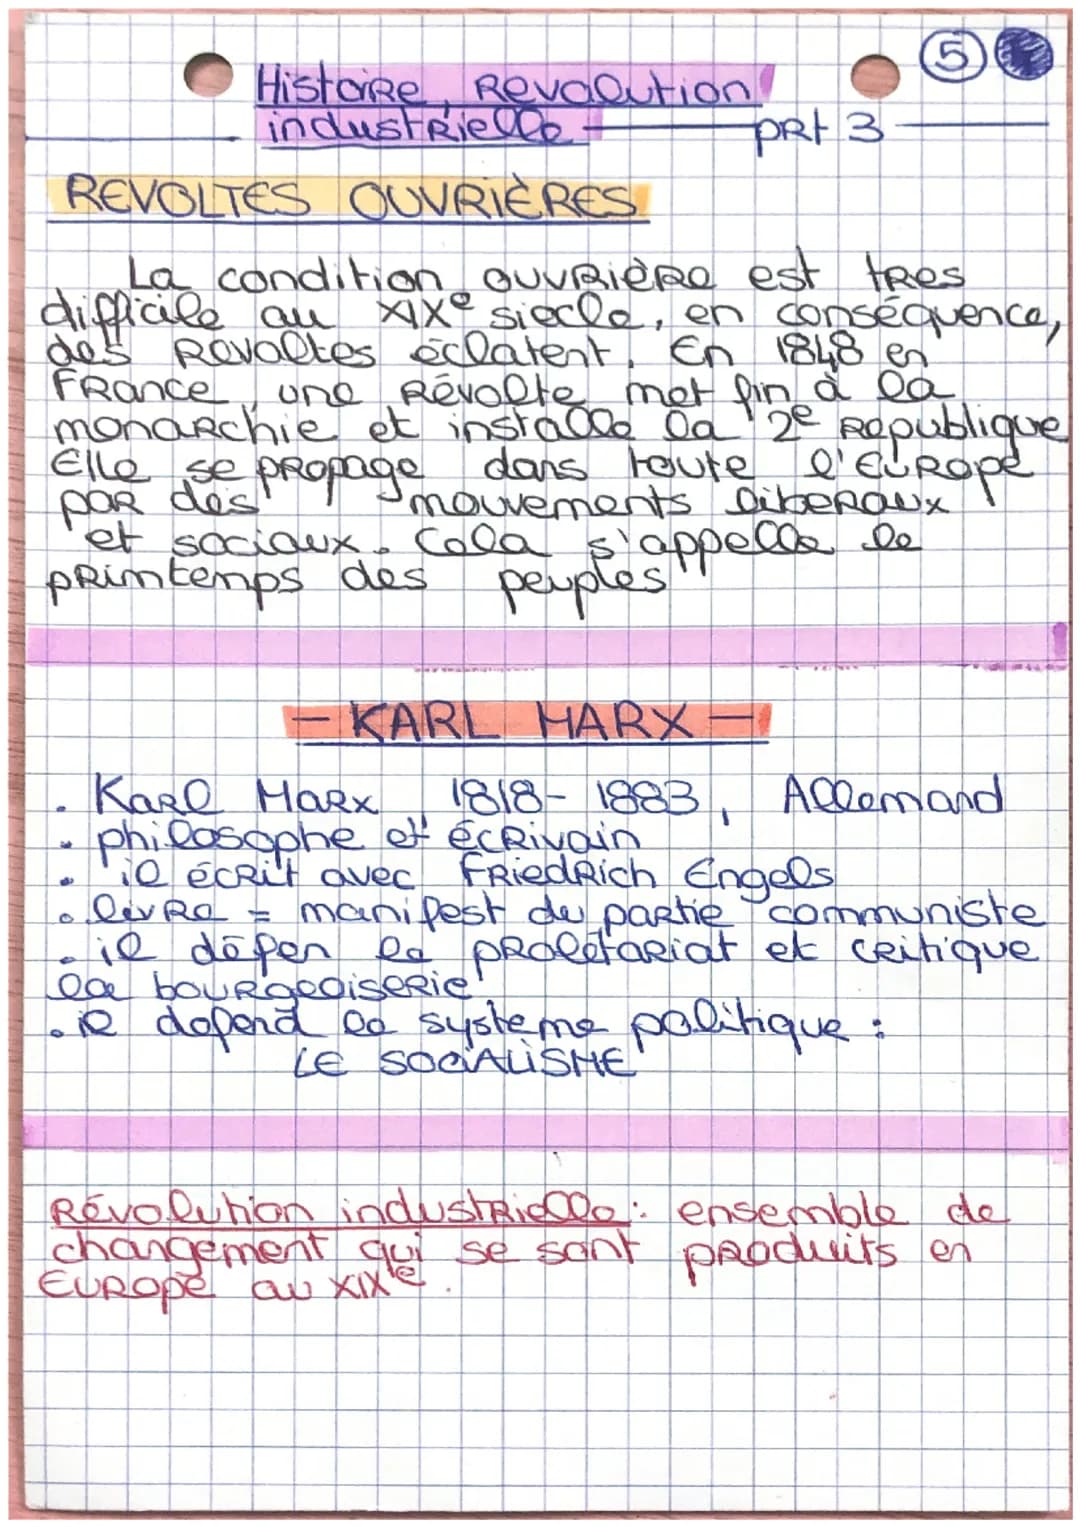 5
Histoire, Revolution
industrielle prt 3
REVOLTES OUVRIÈRES
La condition ouvrière est tres
difficile au XIXe siecle, en conséquence,
des Revoltes éclatent. En 1848 en
France, une Révolte met fin à la
monarchie et installe la 2e Republique
Elle se propage dans toute l'Europe
par des mouvements liberaux
et sociaux. Cela s'appelle le
printemps des peuples
- KARL MARX -
. Karl Marx 1818-1883, Allemand
. philosophe et écrivain
. il écrit avec Friedrich Engels
. livre = manifest du partie communiste
. il défen le proletariat et critique
la bourgeoiserie
. il defend le systeme politique :
LE SOCIALISME
Révolution industrielle : ensemble de
changement qui se sont produits en
Europe au XIXe.